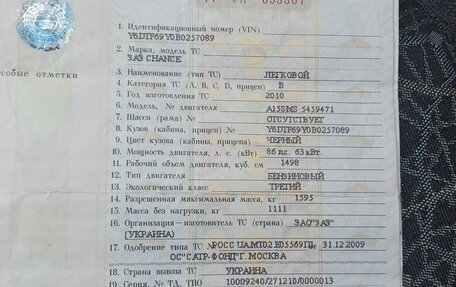 1. Идентификационный номер (VIN)
Y6DTF69Y0B0257089
2. Марка, модель ТС
ЗАЗ CHANCE
собые отметки
3. Наименование (тип ТС) ЛЕГКОВОЙ
4. Категория ТС (A, B, C, D, прицеп) B
5. Год изготовления ТС 2010
6. Модель, № двигателя A15SMS 5459471
7. Шасси (рама) № ОТСУТСТВУЕТ
8. Кузов (кабина, прицеп) № Y6DTF69Y0B0257089
9. Цвет кузова (кабины, прицепа) ЧЕРНЫЙ
10. Мощность двигателя, л. с. (кВт) 86 лс. 63 кВт
11. Рабочий объем двигателя, куб. см 1498
12. Тип двигателя БЕНЗИНОВЫЙ
13. Экологический класс ТРЕТИЙ
14. Разрешенная максимальная масса, кг 1595
15. Масса без нагрузки, кг 1111
16. Организация—изготовитель ТС (страна) ЗАО"ЗАЗ"
(УКРАИНА)
17. Одобрение типа ТС № РОСС UA.МТ02.E05569П1, от 31.12.2009
ОС"САТР-ФОНД"Г.МОСКВА
18. Страна вывоза ТС УКРАИНА
19. Серия, № ТД, ТПО 10009240/271210/0000013